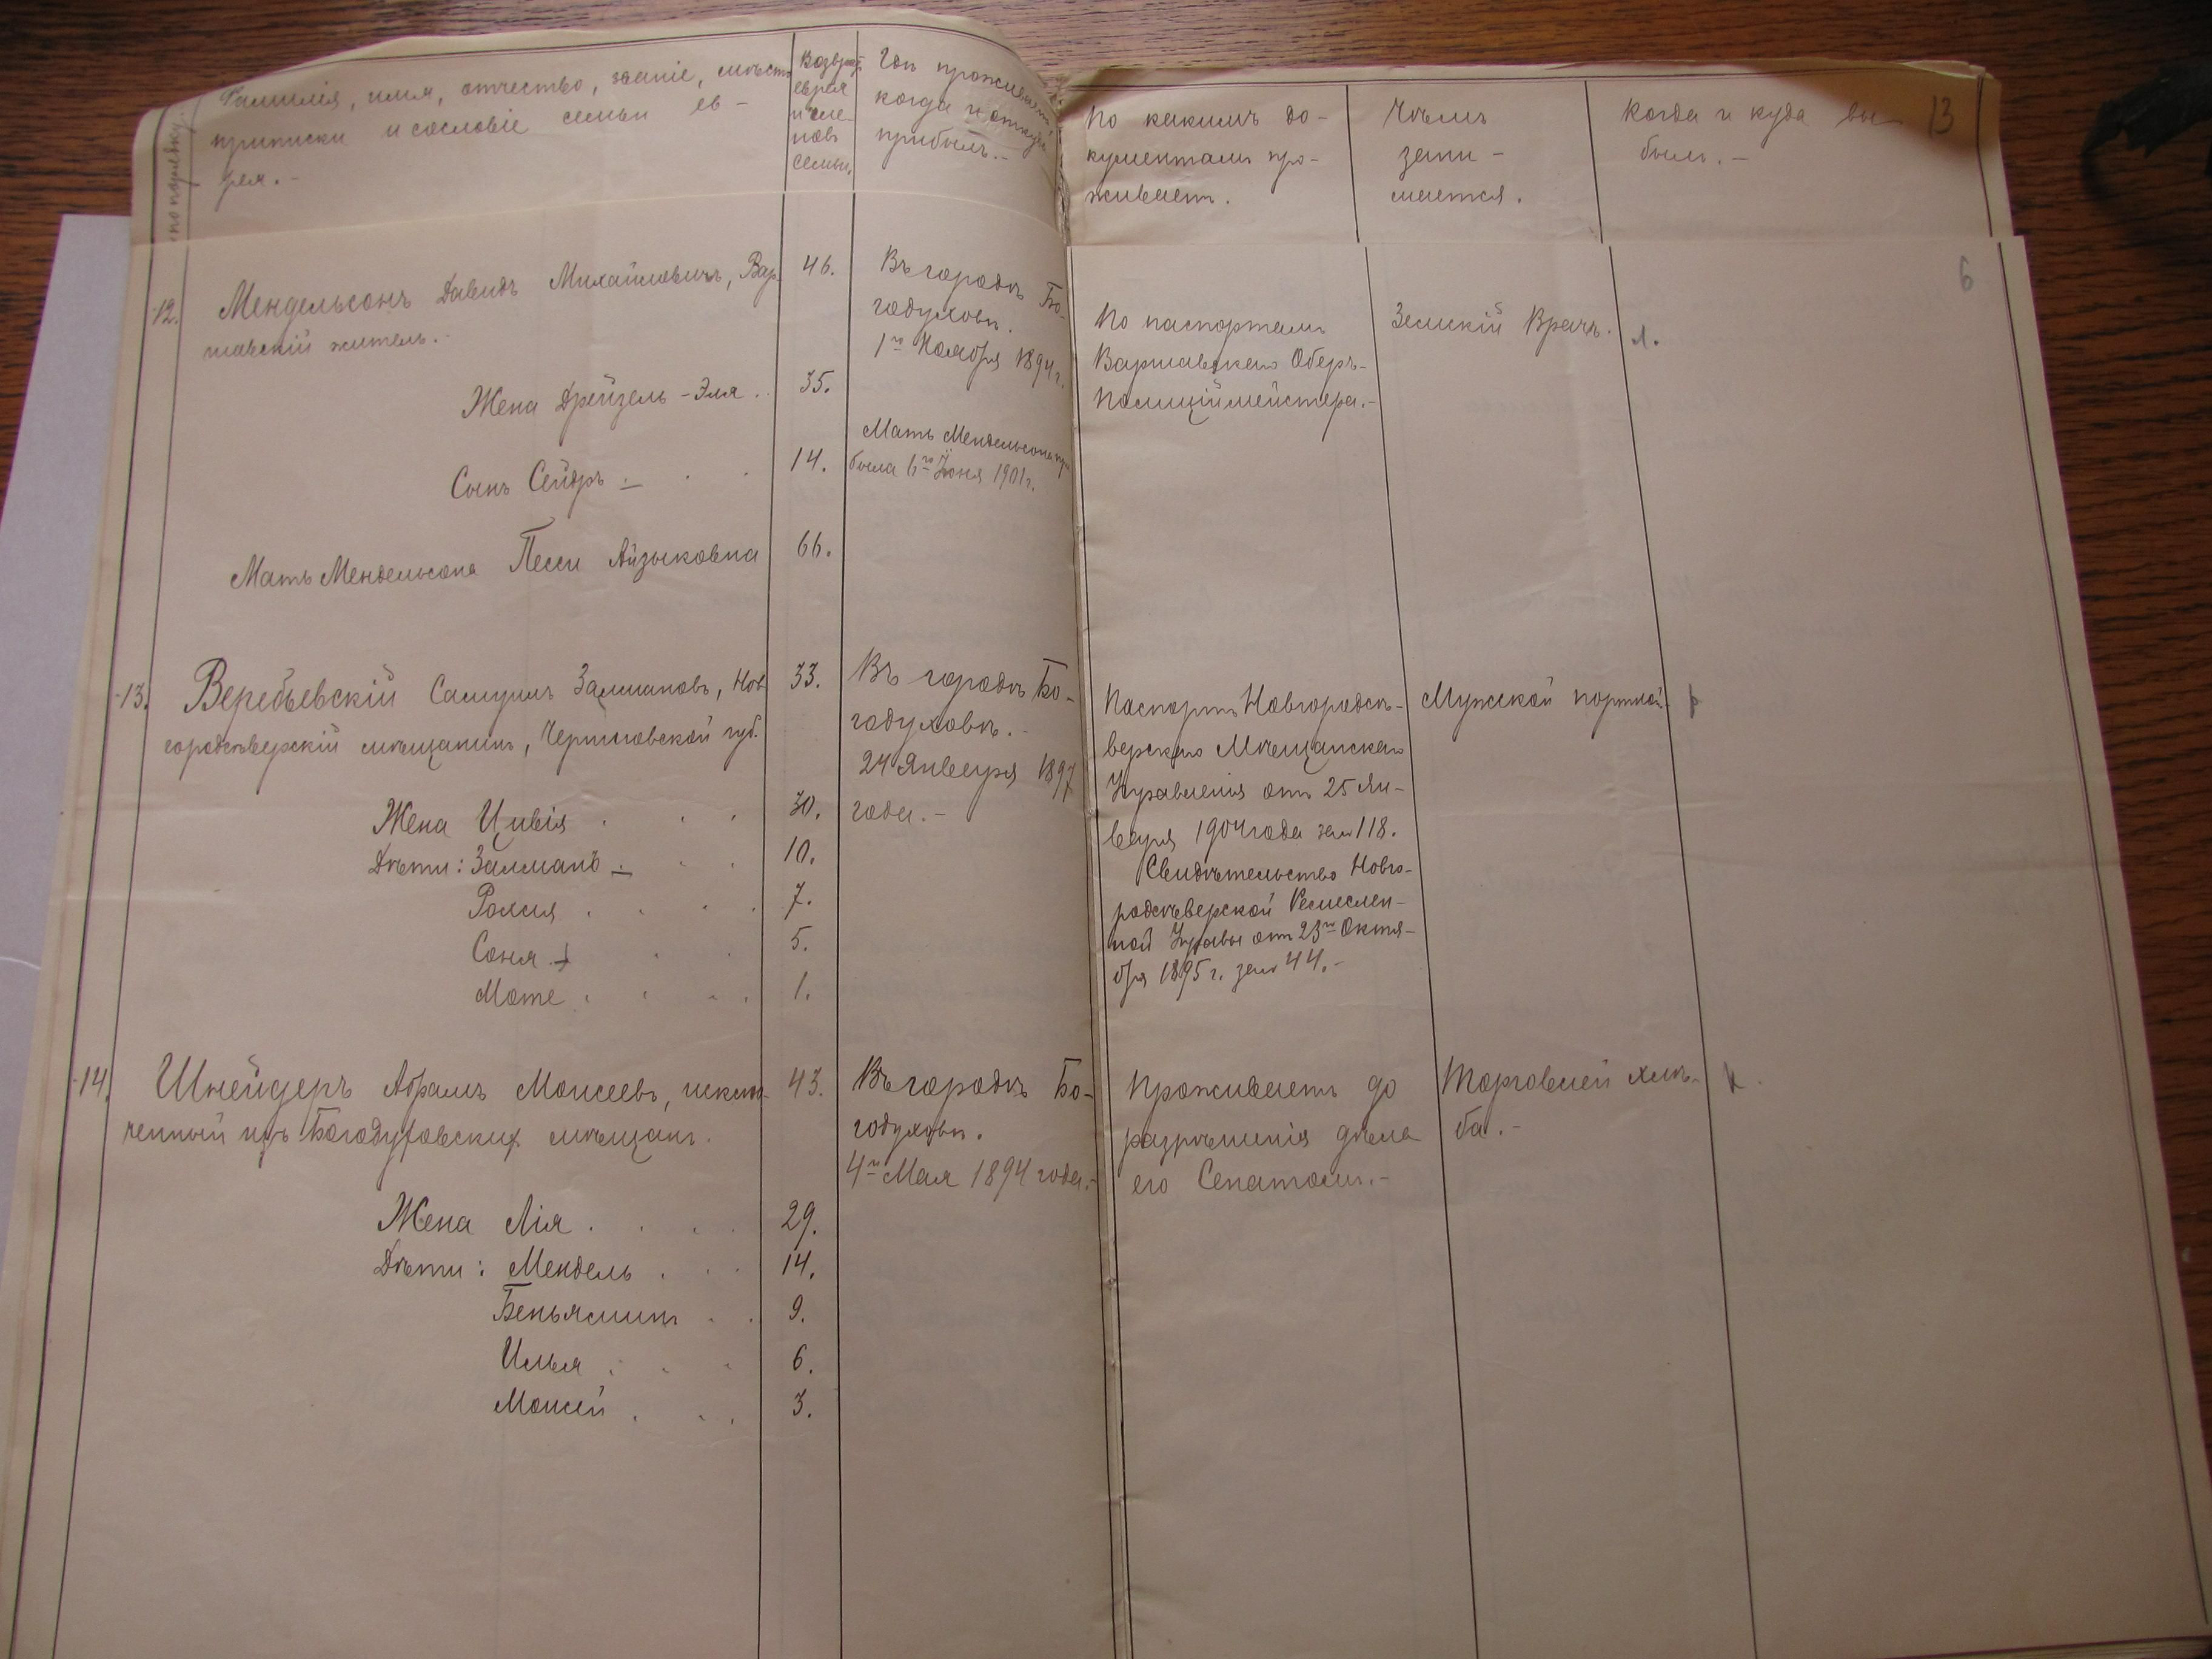 № по порядку.
Фамилія, имя, отчество, званіе, мѣсто
приписки и сословіе семьи ев-
рея.-
Возрас.
еврея
и чле-
новъ
семьи.
Гдѣ проживаетъ,
когда и откуда
прибылъ.-
По какимъ до-
кументамъ про-
живаетъ.
Чѣмъ
зани-
мается.
Когда и куда вы-
былъ.-
13
6
12.
Мендельсонъ Давидъ Михайловичъ, Вар-
шавскій житель.-
46.
Въ городѣ Бо-
годуховѣ.
1го Ноября 1894 г.
По паспортамъ
Варшавскаго Оберъ-
Полиціймейстера.-
Земскій Врачъ.
л.
Жена Дрейзель-Эля.
35.
Сынъ Сейдръ
14.
Мать Мендельсона при
была 6го Іюня 1901 г.
Мать Мендельсона Песси Айзыковна
66.
13.
Веребьевскій Самуилъ Залмановъ, Нов
городсѣверскій мѣщанинъ, Черниговской губ.
33.
Въ городѣ Бо-
годуховѣ.-
24 Января 1897
года.-
Паспортъ Новгородсѣ-
верскаго Мѣщанскаго
Управленія отъ 25 Ян-
варя 1904 года за № 118.
Свидѣтельство Новго-
родсѣверской Ремеслен-
ной Управы отъ 23го Октя-
бря 1895 г. за № 44.-
Мужской портной.
р
Жена Цивія
30.
Дѣти: Залманъ
10.
Рохля
7.
Соня
5.
Моте
1.
14.
Шнейдеръ Абрамъ Моисеевъ, исклю-
ченный изъ Богодуховскихъ мѣщанъ.
43.
Въ городѣ Бо-
годуховѣ.
4го Мая 1894 года.-
Проживаетъ до
разрѣшенія дѣла
его Сенатомъ.-
Торговлей хлѣ-
ба.-
Жена Лія
29.
Дѣти: Мендель
14.
Беньяминъ
9.
Илья
6.
Моисей
3.